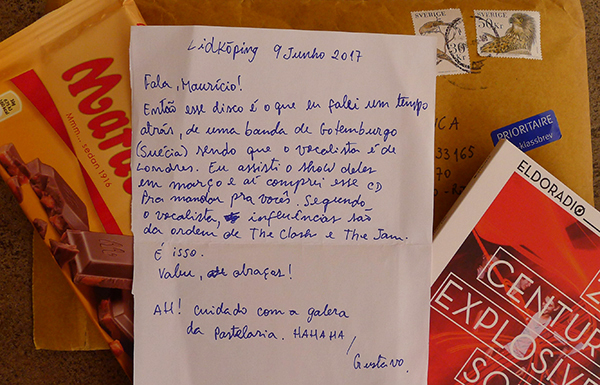 Lidköping 9 Junho 2017
Fala, Maurício!
Então esse disco é o que eu falei um tempo
atrás, de uma banda de Gotemburgo
(Suécia) sendo que o vocalista é de
Londres. Eu assisti o show deles
em março e aí comprei esse CD
pra mandar pra vocês. Segundo
o vocalista, influências são
da ordem de The Clash e The Jam.
É isso.
Valeu, abraços!
AH! cuidado com a galera
da pastelaria. HAHAHA
Gustavo.
Mmm... sedan 1916
SVERIGE
SVERIGE
50 Kr
PRIORITAIRE
klassbrev
33165
ELDORADIO
CENTUR
EXPLOSIVE
SO